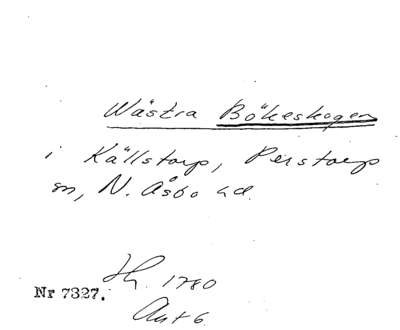 Wästra Bökeskogen
i Källstorp, Perstorps
sn, N. Åsbo hd.
Nr 7327.
1780
Akt 6